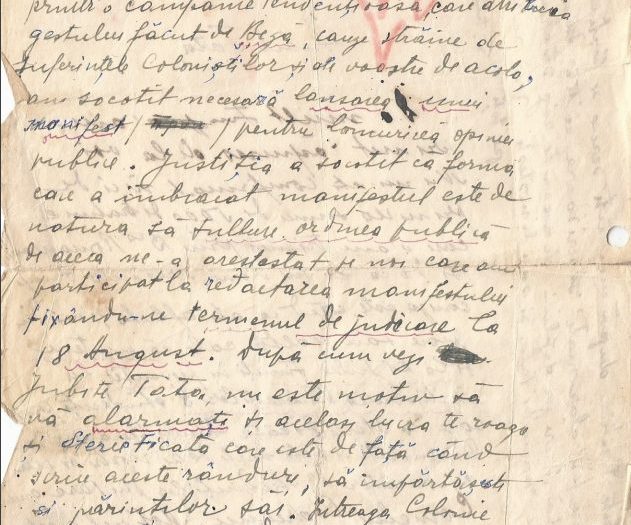 printr'o campanie tendențioasă, care atribuia
gestului făcut de Beza, cauze străine de
suferințele Coloniștilor și ale voastre de acolo,
am socotit necesară lansarea unui
manifest / / pentru lămurirea opiniei
publice. Justiția a socotit că forma
care a îmbrăcat manifestul este de
natura să tulbure ordinea publică
de aceea ne-a arestat și noi care am
participat la redactarea manifestului
fixându-ne termenul de judecare la
18 August. După cum vezi
Iubite Tată, nu este motiv să
vă alarmați și același lucru te roagă
și Sterie Ficata care este de față când
scriu aceste rânduri, să împărtășești
și părinților săi. Întreaga Colonie